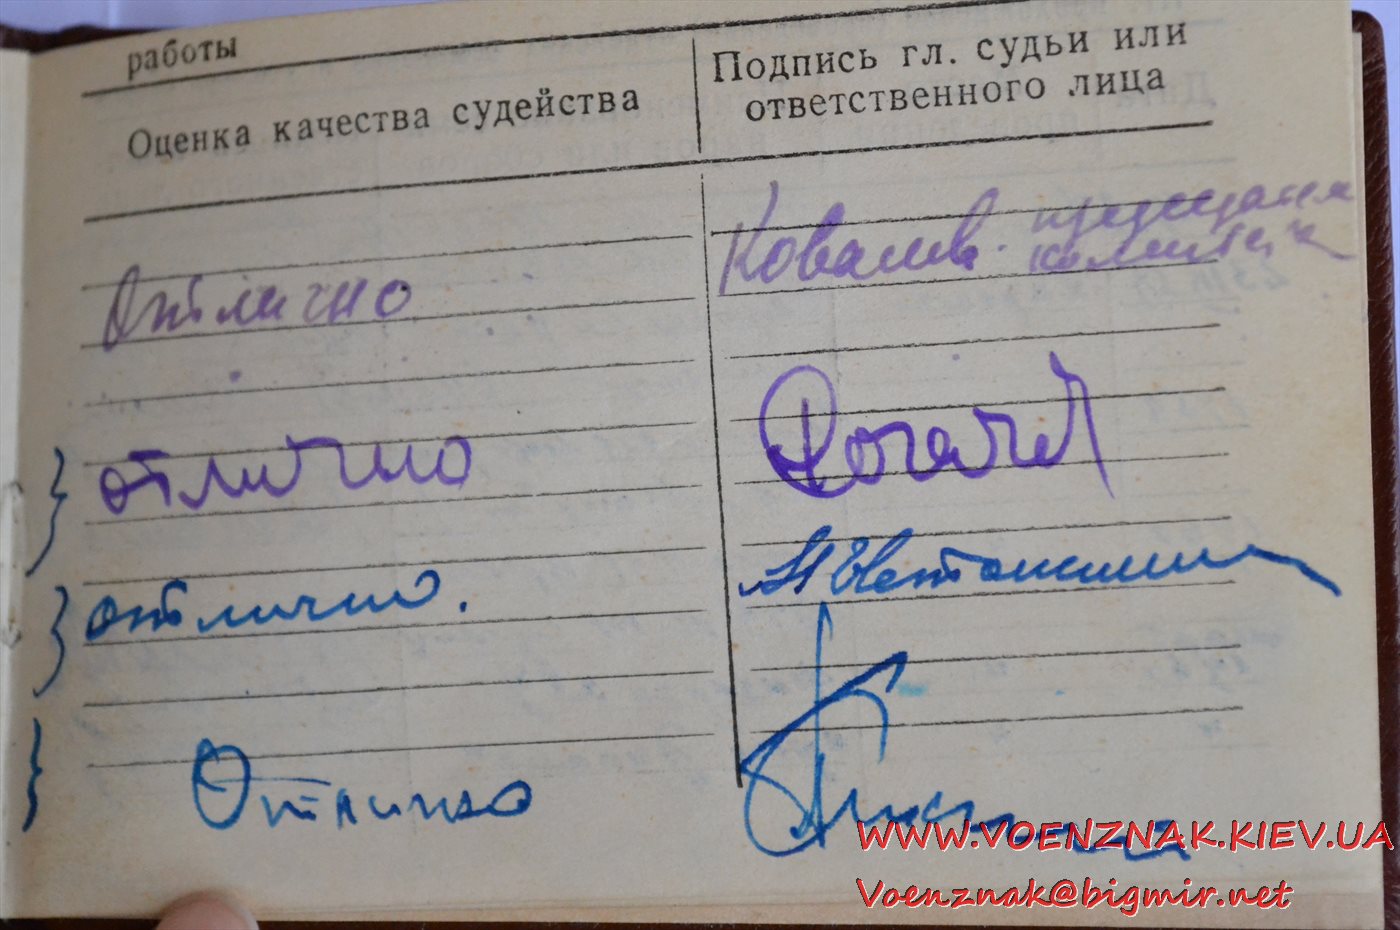 работы
Оценка качества судейства
Подпись гл. судьи или
ответственного лица
Отлично
Ковалев.
отлично
отлично.
Отлично
WWW.VOENZNAK.KIEV.UA
Voenznak@bigmir.net